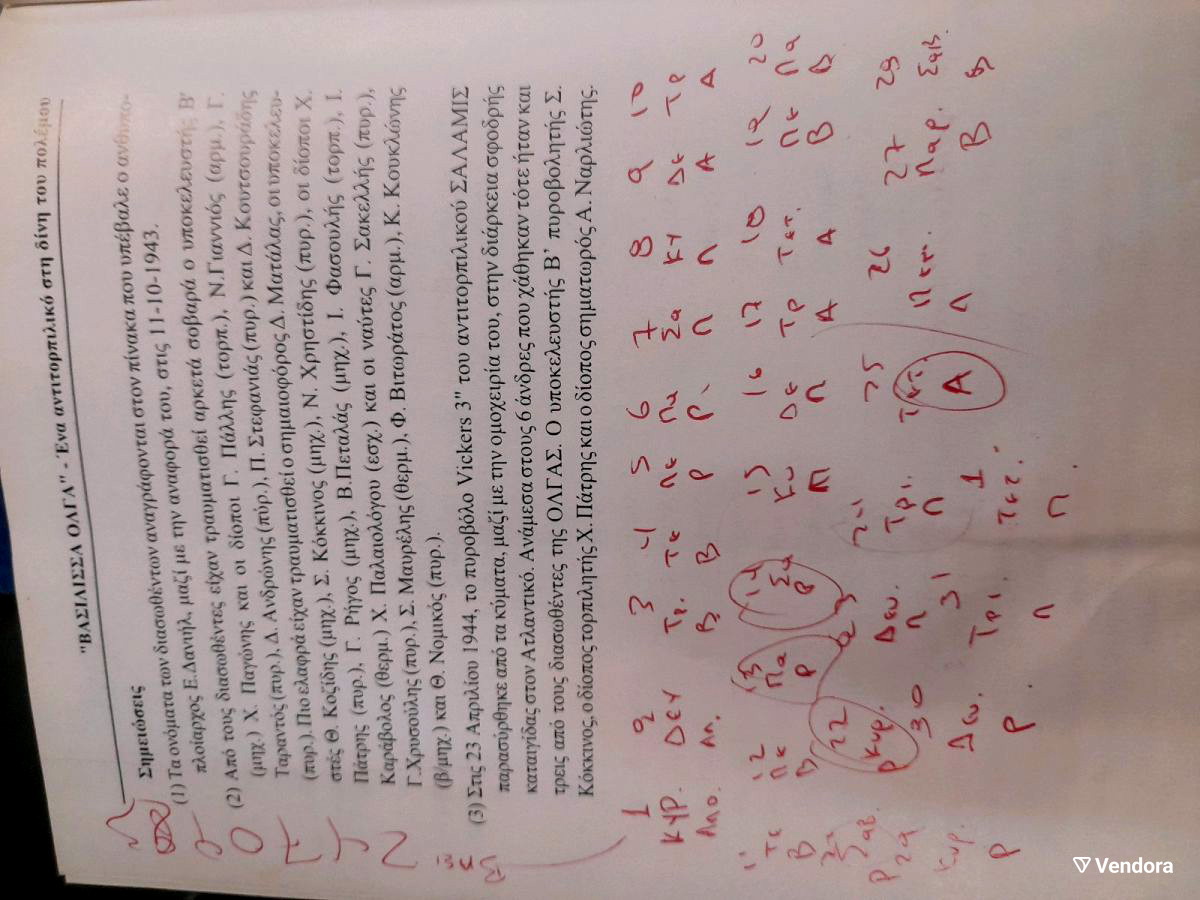 "ΒΑΣΙΛΙΣΣΑ ΟΛΓΑ" - Ένα αντιτορπιλικό στη δίνη του πολέμου
Σημειώσεις
(1) Τα ονόματα των διασωθέντων αναγράφονται στον πίνακα που υπέβαλε ο ανθυπο-
πλοίαρχος Ε.Δανιήλ, μαζί με την αναφορά του, στις 11-10-1943.
(2) Από τους διασωθέντες είχαν τραυματισθεί αρκετά σοβαρά ο υποκελευστής Β'
(μηχ.) Χ. Παγώνης και οι δίοποι Γ. Πάλλης (τορπ.), Ν.Γιαννιός (αρμ.), Γ.
Ταραντός (πυρ.), Δ. Ανδρώνης (πύρ.), Π. Στεφανιάς (πυρ.) και Δ. Κουτσουράδης
(πυρ.). Πιο ελαφρά είχαν τραυματισθεί ο σημαιοφόρος Δ. Ματάλας, οι υποκελευ-
στές Θ. Κοζίδης (μηχ.), Σ. Κόκκινος (μηχ.), Ν. Χρηστίδης (πυρ.), οι δίοποι Χ.
Πάτρης (πυρ.), Γ. Ρήγος (μηχ.), Β.Πεταλάς (μηχ.), Ι. Φασουλής (τορπ.), Ι.
Καράβολος (θερμ.) Χ. Παλαιολόγου (εσχ.) και οι ναύτες Γ. Σακελλής (πυρ.),
Γ.Χρυσούλης (πυρ.), Σ. Μαυρέλης (θερμ.), Φ. Βιτωράτος (αρμ.), Κ. Κουκλώνης
(β/μηχ.) και Θ. Νομικός (πυρ.).
(3) Στις 23 Απριλίου 1944, το πυροβόλο Vickers 3" του αντιτορπιλικού ΣΑΛΑΜΙΣ
παρασύρθηκε από τα κύματα, μαζί με την ομοχειρία του, στην διάρκεια σφοδρής
καταιγίδας στον Ατλαντικό. Ανάμεσα στους 6 άνδρες που χάθηκαν τότε ήταν και
τρεις από τους διασωθέντες της ΟΛΓΑΣ. Ο υποκελευστής Β' πυροβολητής Σ.
Κόκκινος, ο δίοπος τορπιλητής Χ. Πάτρης και ο δίοπος σηματωρός Α. Ναρλιώτης.
1 2 3 4 5 6 7 8 9 10
ΚΥΡ. ΔΕΥ Τρ. Τε Πε Πα Σα ΚΥ Δε ΤΡ
Απο. Απ. Β Β Ρ Ρ. Π Π Α Α
11 12 13 14 15 16 17 18 19 20
Τε Πε Πα Σα Κυ Δε Τρ Τετ. Πε Πα
Β Β Ρ Ρ Π Π Α Α Β Β
22 23 24 25 26 27 28
Σαβ Κυρ. Δευ. Τρι. Τετ. Πεμ. Παρ. Σαβ.
Ρ Ρ Π Π Α Α Β Β
29 30 31 1
Κυρ Δευ. Τρι. Τετ.
Ρ Ρ. Π Π.
Vendora